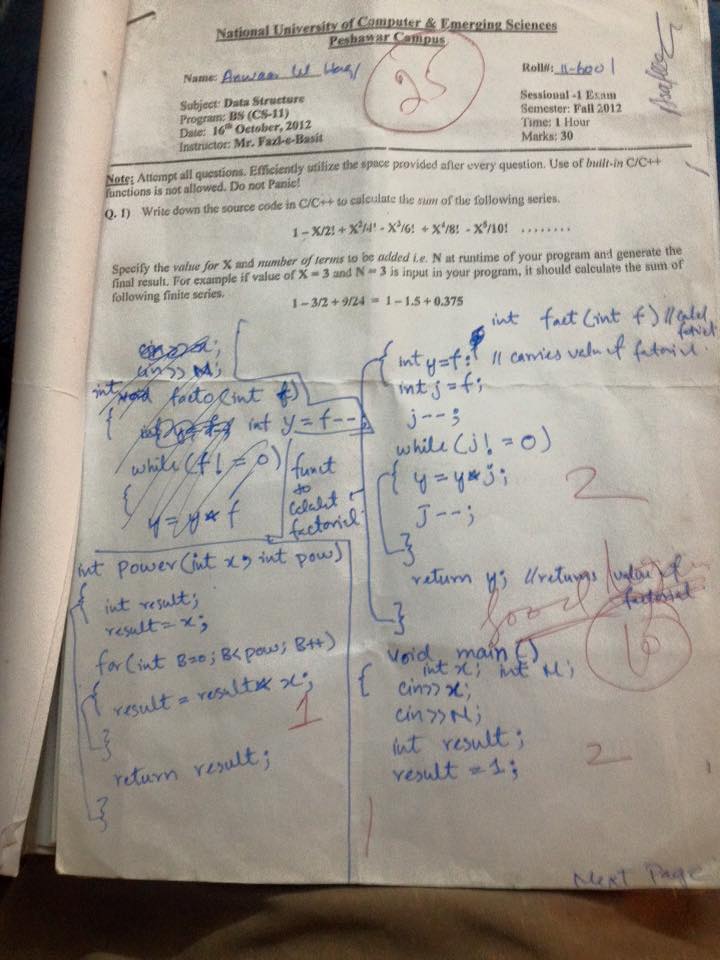 National University of Computer & Emerging Sciences
Peshawar Campus
Name: Anwaar Ul Haq
Roll#: 11-6001
25
Subject: Data Structure
Program: BS (CS-11)
Date: 16th October, 2012
Instructor: Mr. Fazl-e-Basit
Sessional -1 Exam
Semester: Fall 2012
Time: 1 Hour
Marks: 30
Note: Attempt all questions. Efficiently utilize the space provided after every question. Use of built-in C/C++
functions is not allowed. Do not Panic!
Q. 1) Write down the source code in C/C++ to calculate the sum of the following series.
1 – X/2! + X²/4! - X³/6! + X⁴/8! - X⁵/10! ........
Specify the value for X and number of terms to be added i.e. N at runtime of your program and generate the
final result. For example if value of X = 3 and N = 3 is input in your program, it should calculate the sum of
following finite series.
1 – 3/2 + 9/24 = 1 – 1.5 + 0.375
cin>>x;
cin>>N;
int void facto(int f)
{ int y=f--; int y=f--;
while(f!=0)
{
y=y*f
funct
to
factorial
int power(int x, int pow)
{ int result;
result=x;
for(int B=0; B<pow; B++)
{ result = result* x;
}
return result;
}
1
int fact(int f) //
{ int y=f; // carries value of factorial.
int j=f;
j--;
while(j!=0)
{ y=y*j;
J--;
}
2
return y; //returns value of
factorial
}
Good
16
void main()
{ int x; int N;
cin>>x;
cin>>N;
int result;
result=1;
2
Next Page